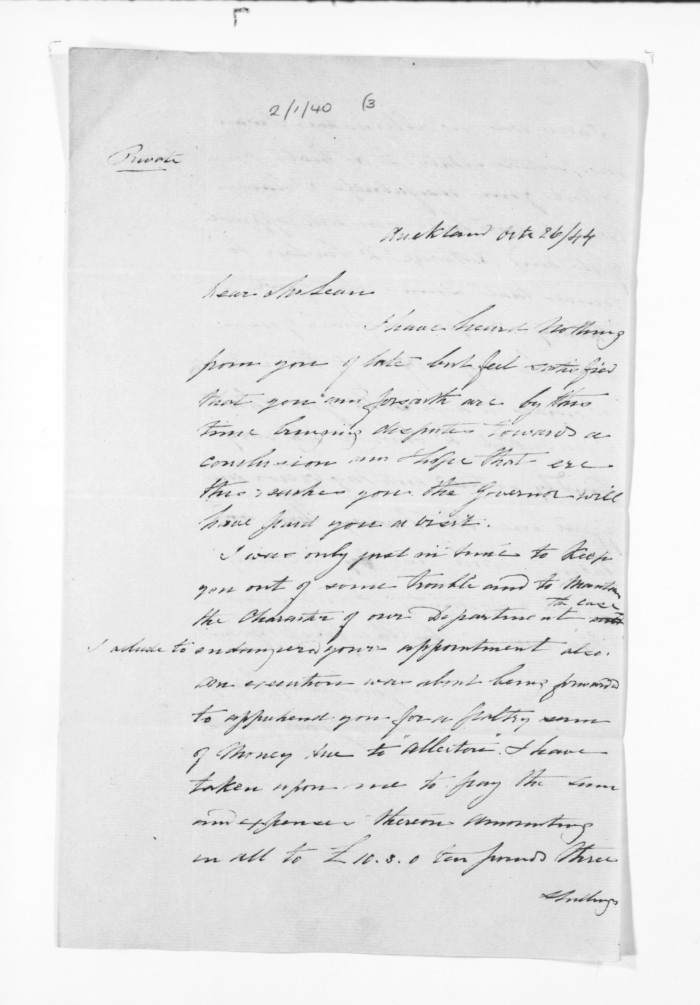 2/1/40 (3
Private
Auckland Octr 26/44
Dear McLean
I have heard Nothing
from you of late but feel satisfied
that you and forsaith are by this
time bringing disputes towards a
conclusion and I hope that ere
this reaches you the Governor will
have paid you a visit.
I was only just in time to Keep
you out of some trouble and to Maintain
the Character of our Department the case
I allude to endangered your appointment also.
an execution was about being forwarded
to apprehend you for a paltry sum
of Money due to "Allerton". I have
taken upon me to pay the sum
and expenses thereon amounting
in all to £10.3.0 ten pounds three
Shillings